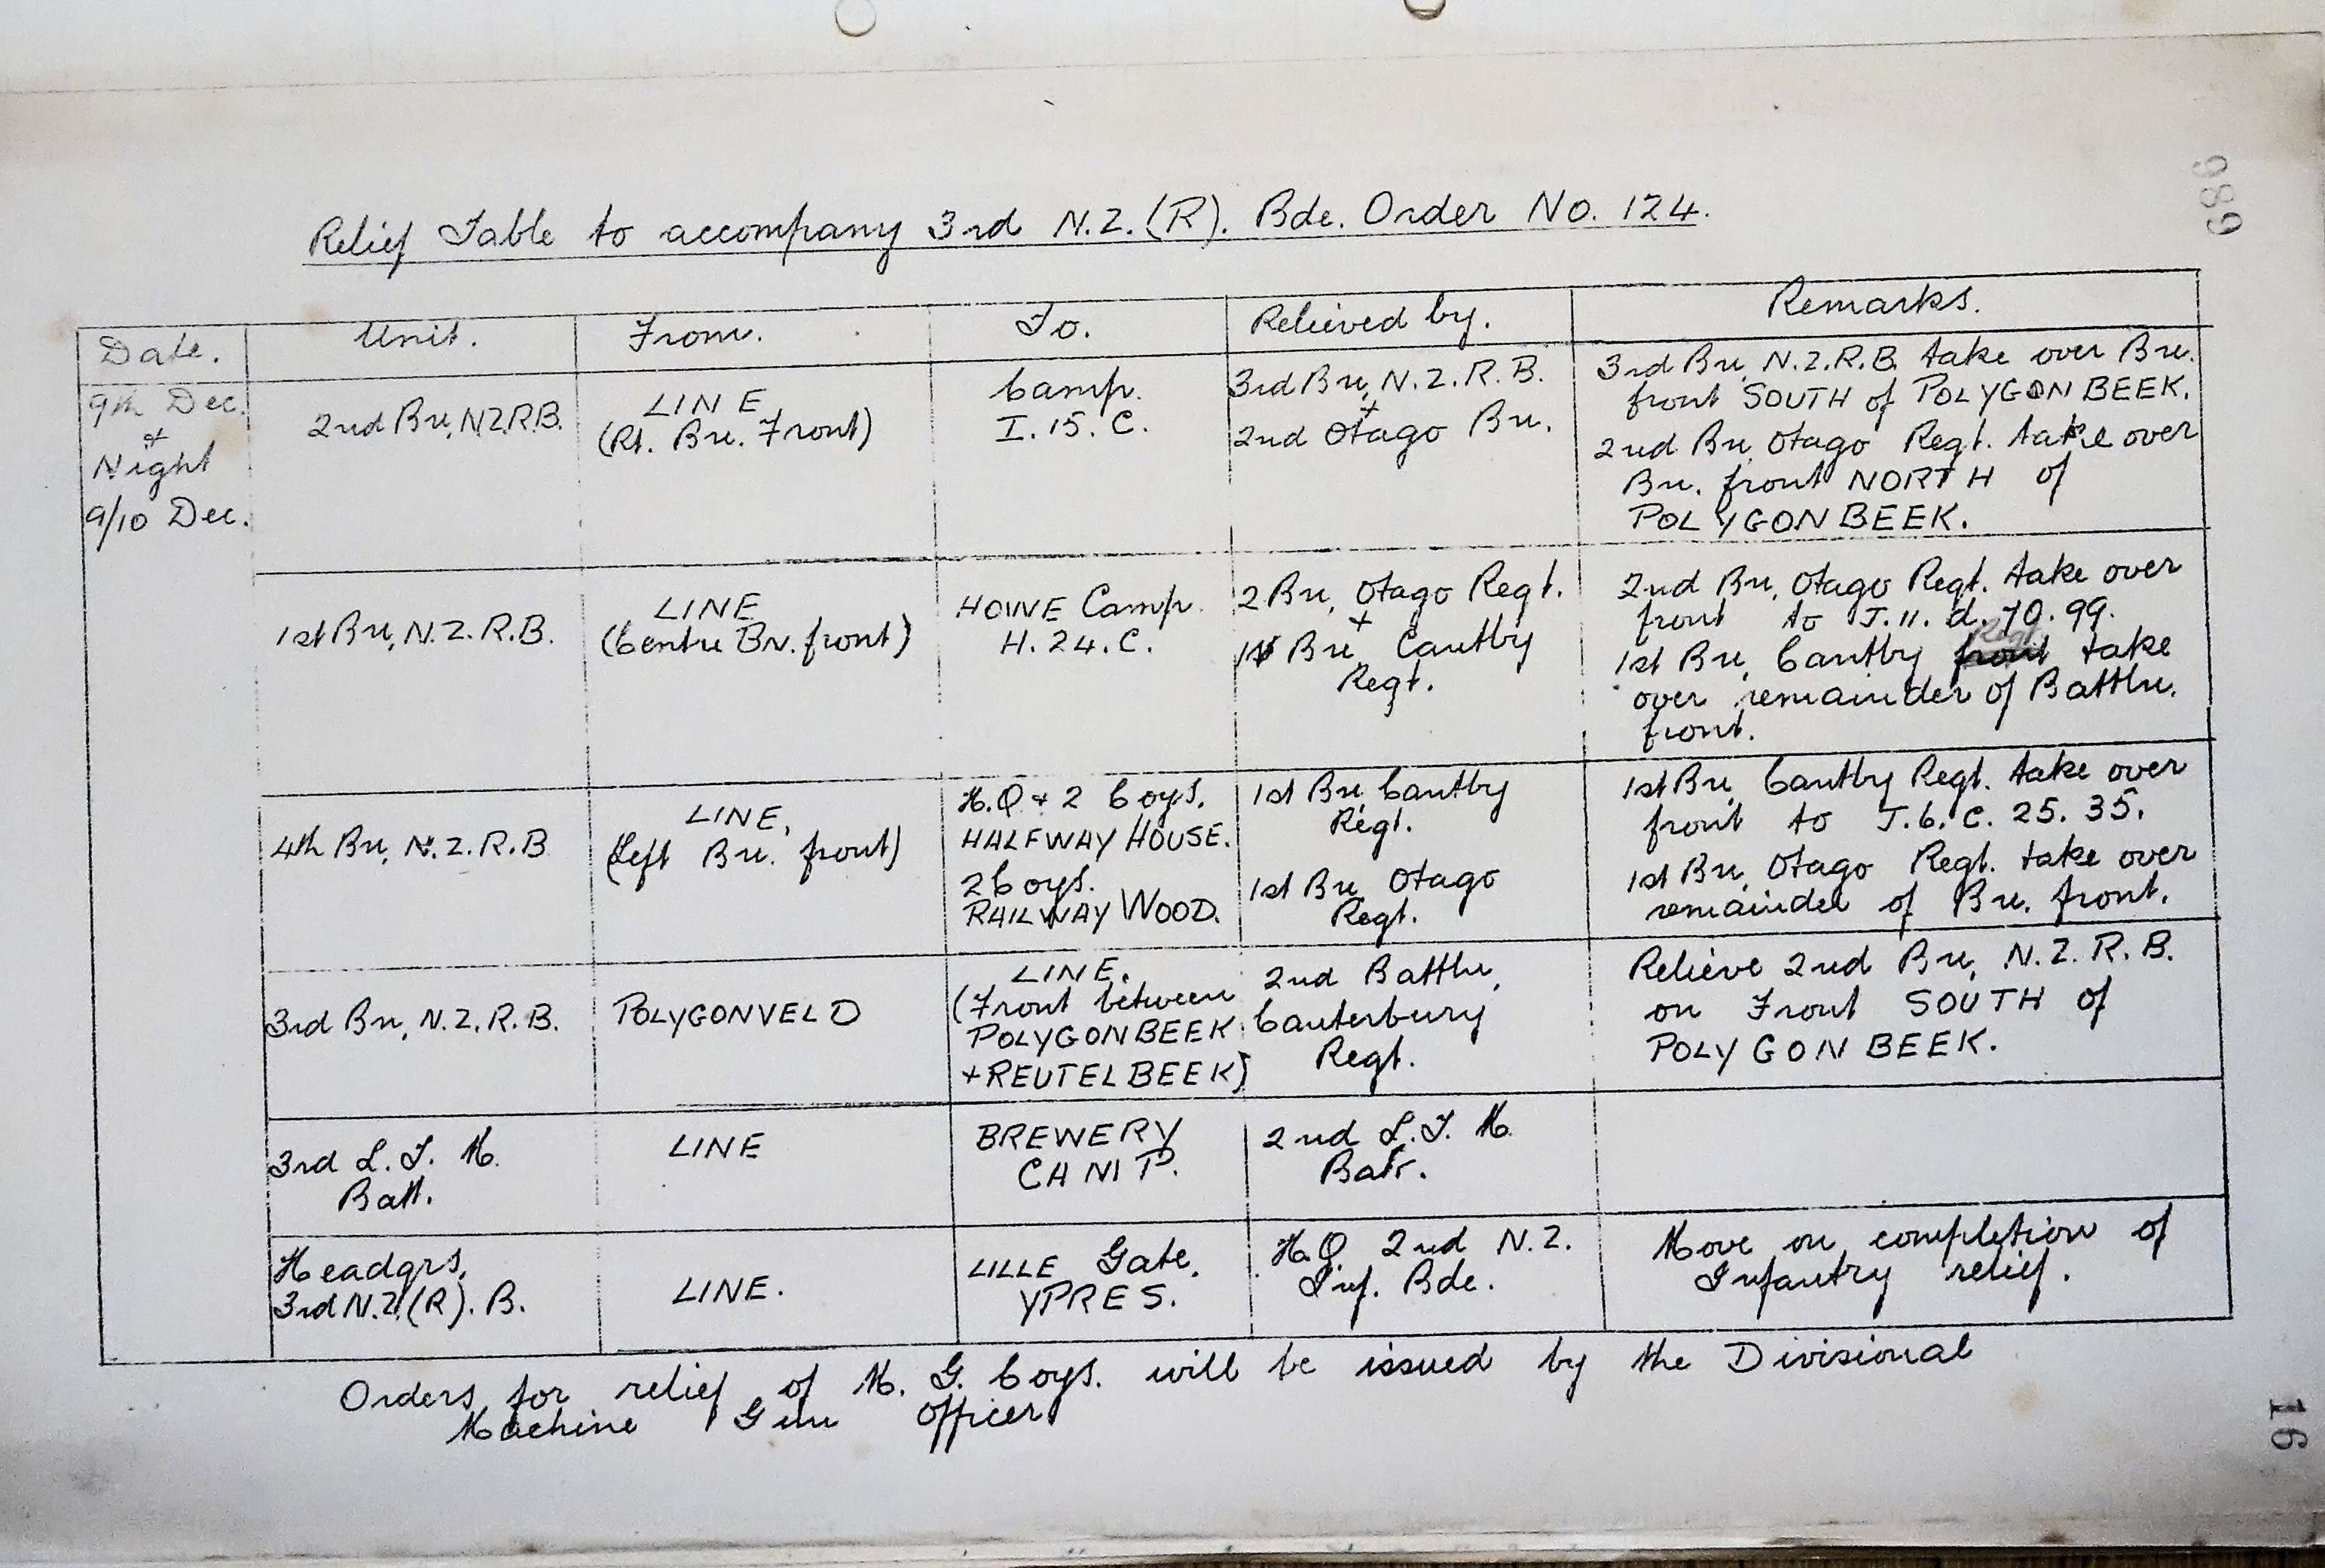 Relief Table to accompany 3rd N.Z.(R). Bde. Order No. 124.
Date.
Unit.
From.
To.
Relieved by.
Remarks.
9th Dec.
+
Night
9/10 Dec.
2nd Bn, N.Z.R.B.
LINE
(Rt. Bn. Front)
Camp.
I.15.C.
3rd Bn, N.Z.R.B.
+
2nd Otago Bn.
3rd Bn, N.Z.R.B. take over Bn.
front SOUTH of POLYGONBEEK.
2nd Bn, Otago Regt. take over
Bn. front NORTH of
POLYGONBEEK.
1st Bn, N.Z.R.B.
LINE
(Centre Bn. front)
HOWE Camp
H.24.C.
2 Bn, Otago Regt.
+
1st Bn, Cantby
Regt.
2nd Bn, Otago Regt. take over
front to J.11.d.70.99.
Regt.
1st Bn, Cantby front take
over remainder of Battln.
front.
4th Bn, N.Z.R.B
LINE,
(Left Bn. front)
H.Q + 2 Coys.
HALFWAY HOUSE.
2 Coys.
RAILWAY WOOD.
1st Bn, Cantby
Regt.
1st Bn, Otago
Regt.
1st Bn, Cantby Regt. take over
front to J.6.C.25.35.
1st Bn, Otago Regt. take over
remainder of Bn. front.
3rd Bn, N.Z.R.B.
POLYGONVELD
LINE.
(Front between
POLYGONBEEK
+ REUTELBEEK)
2nd Battln,
Canterbury
Regt.
Relieve 2nd Bn, N.Z.R.B.
on Front SOUTH of
POLYGONBEEK.
3rd L.T.M.
Batt.
LINE
BREWERY
CAMP.
2nd L.T.M
Batt.
Headqrs,
3rd N.Z.(R).B.
LINE.
LILLE Gate,
YPRES.
H.Q. 2nd N.Z.
Inf. Bde.
Move on completion of
Infantry relief.
Orders for relief of M.G. Coys. will be issued by the Divisional
Machine Gun Officer
689
16